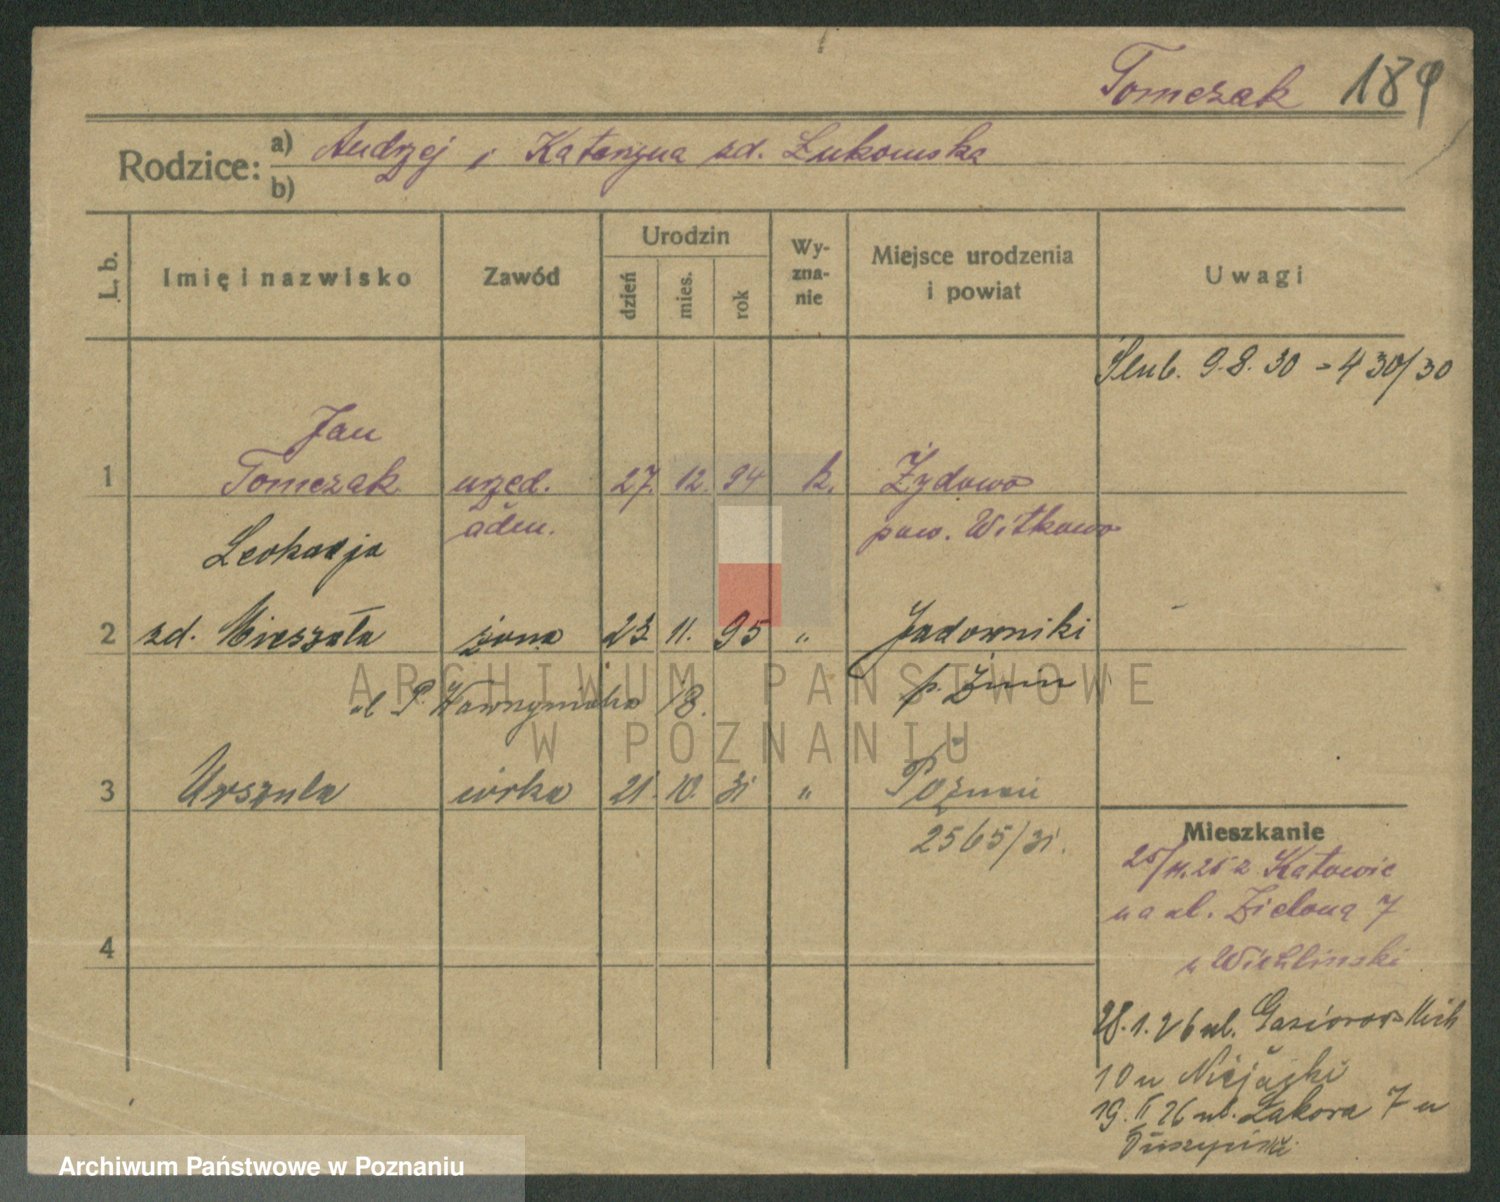 Tomczak 189
Rodzice: a) Andrzej i Katarzyna zd. Łukowska
b)
L. b.
Imię i nazwisko
Zawód
Urodzin
dzień
mies.
rok
Wy-
zna-
nie
Miejsce urodzenia
i powiat
Uwagi
Ślub. 9.8.30 - 430/30
Jan
1 Tomczak urzęd. 27. 12. 94 k. Żydowo
adm. pow. Witkowo
Leokadja
2 zd. Mieszała żona 23 11. 95 " Jadowniki
p. Żnin
ul P. Wawrzyniaka 18.
3 Urszula córka 21. 10. 31 " Poznań
2565/31.
4
Mieszkanie
25/11.25 z Katowic
na ul. Zieloną 7
u Wichlinski
28.1.26 ul. Gąsiorowskich
10 u
19.II 26 ul. Łąkowa 7 u
ARCHIWUM PAŃSTWOWE
W POZNANIU
Archiwum Państwowe w Poznaniu